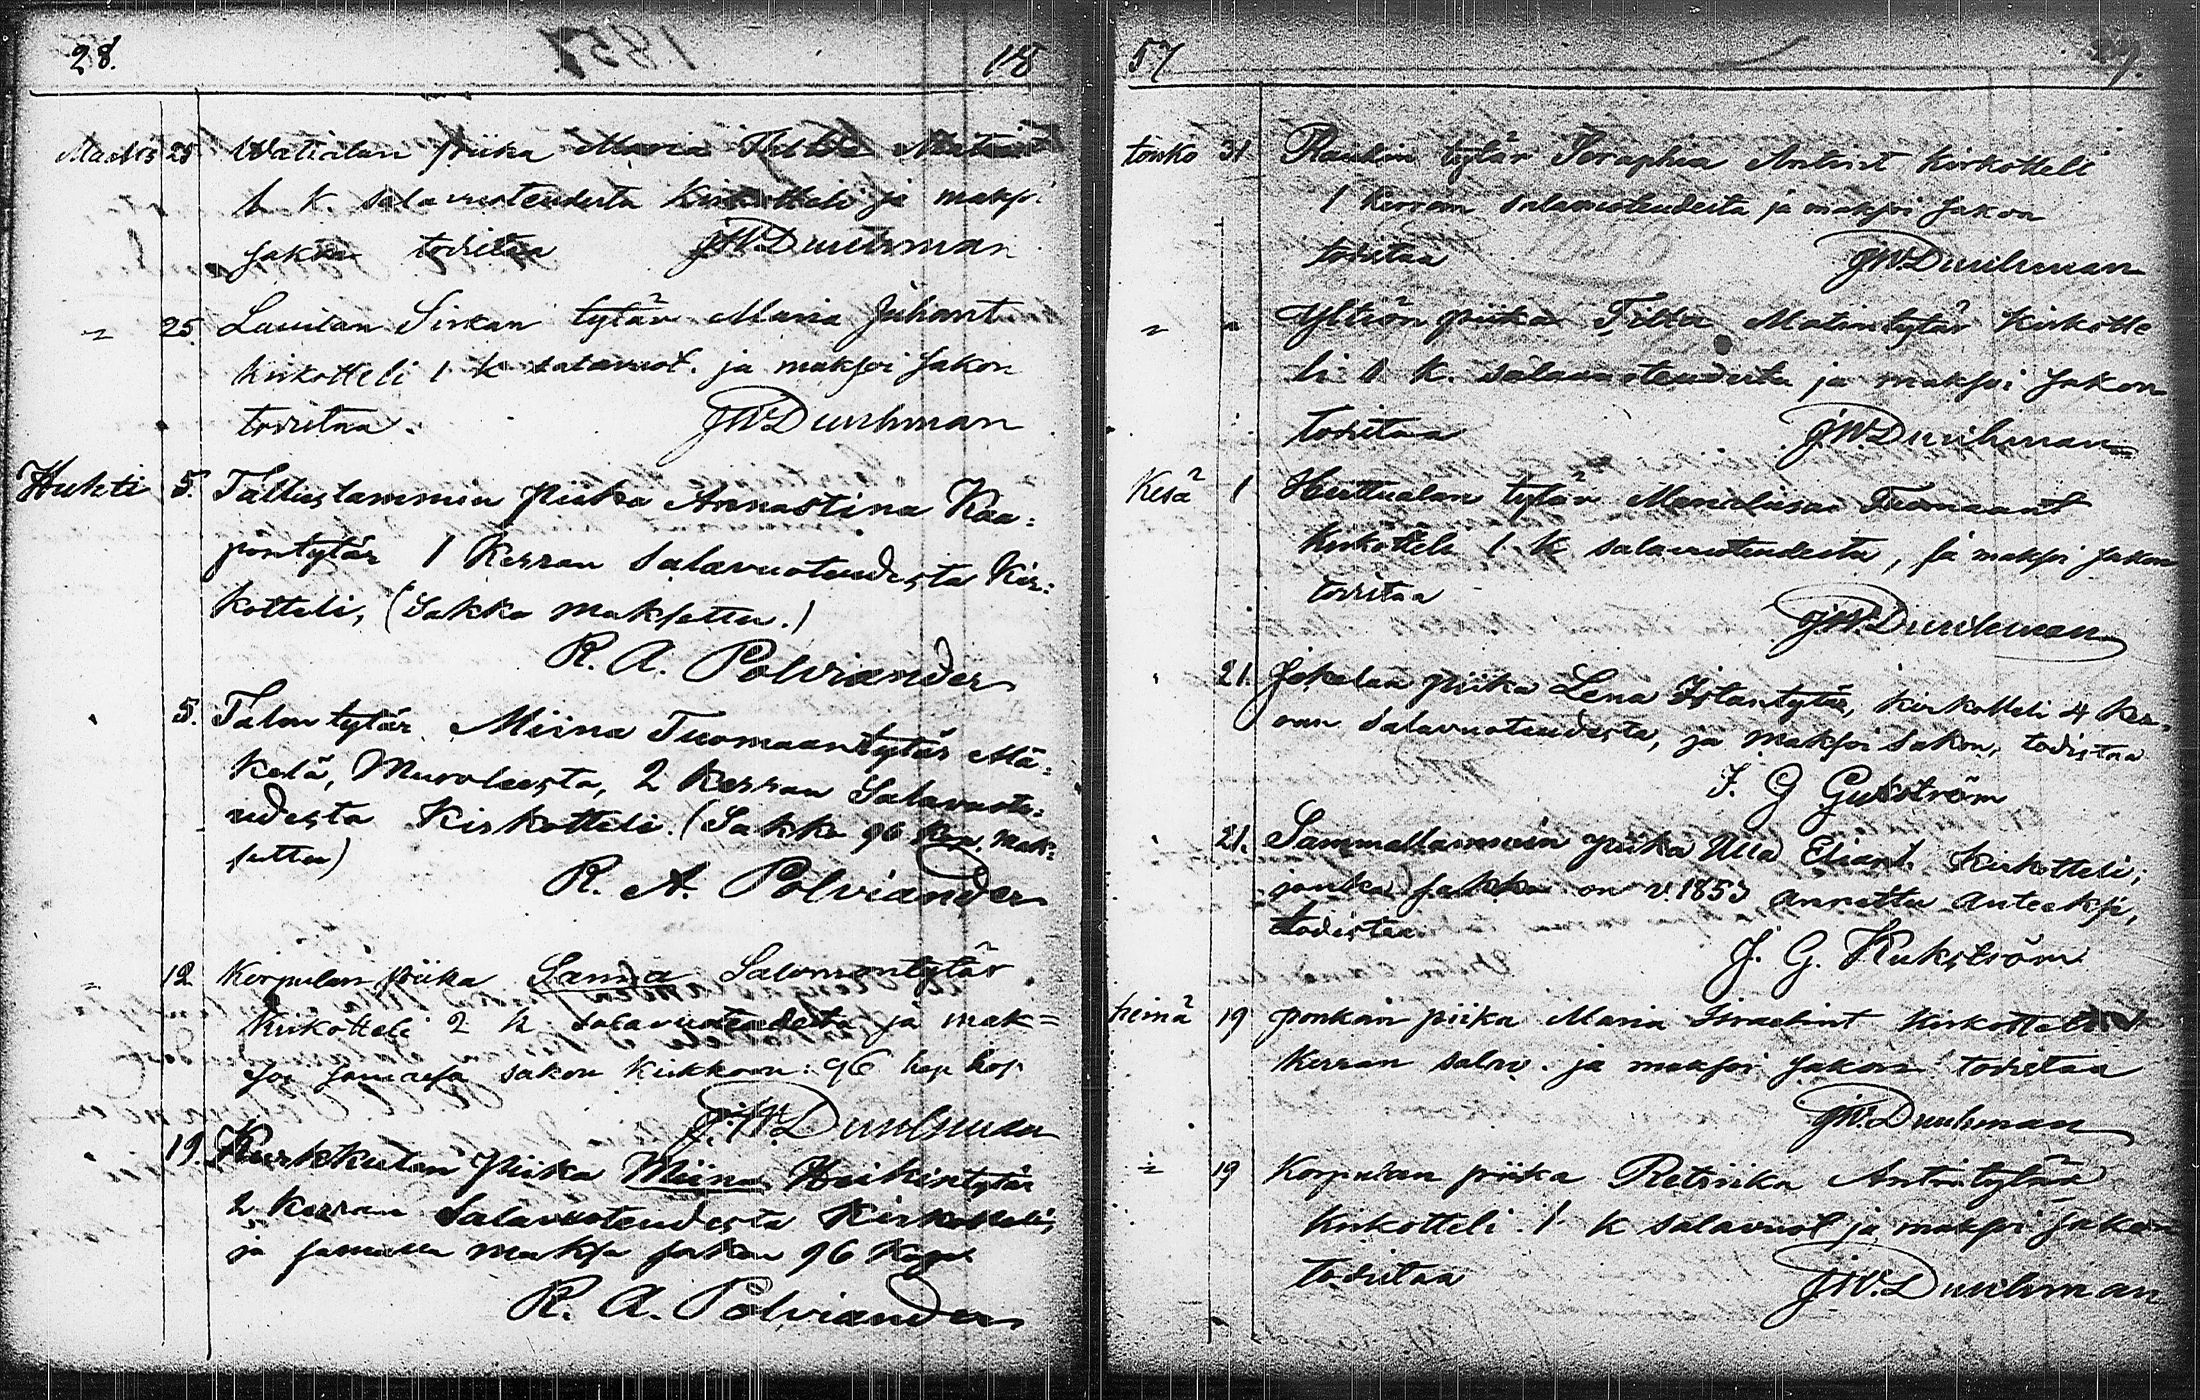 28. 18
Watialan piika Maria
1 k salavuoteudesta kirkotteli ja maksoi
sakon todistaa JWDuuhman
" 25. Laurilan Sirkan tytär Maria Juhant
kirkotteli 1 k salavuot. ja maksoi sakon
todistaa. JWDuuhman
Huhti 5. Talluslammin piika Annastina Kaa:
pontytär 1 Kerran Salavuoteudesta Kir:
kotteli, (Sakko maksettu.)
R. A. Polviander
5. Talon tytär Miina Tuomaantytär Mä:
kelä, Muroleesta, 2 Kerran Salavuote:
udesta Kirkotteli. (Sakko 96 kop. mak:
settu)
R. A. Polviander
" 12 Korpulan piika Sanna Salomontytär
kirkotteli 2 k salavuoteudesta ja mak=
soi sakon kirkkoon: 96 kop hop
J.W.Duuhman
19. Kurkkulan piika Miina Heikintytär
2 kerran Salavuoteudesta Kirkotteli,
ja maksa sakon 96 Kop.
R. A. Polviander
57
touko 31 Raukin tytär Seraphia Antint kirkotteli
1 kerran salavuoteudesta ja maksoi sakon
todistaa JWDuuhman
" " Yltiön piika Tilda Matintytär kirkotte
li 1 k. salavuoteudesta ja maksoi sakon
todistaa JWDuuhman
Kesä 1 Huttualan tytär Marialiisa Tuomaant
kirkotteli 1 k salavuoteudesta, ja maksoi sakon
todistaa
JWDuuhman
21. Jokelan piika Lena Istantytär, kirkotteli 4 ker=
ran Salavuoteudesta, ja maksoi sakon, todistaa
J. G
21. Sammallammin piika Ulla Eliant. kirkotteli;
jonka sakko on v. 1853 annettu anteeksi,
todistaa
J. G. Kukström
heinä 19 ponkan piika Maria Israelint kirkotteli
kerran salav. ja maksoi sakon todistaa
JWDuuhman
" 19 Korpulan piika Retriika Antintytär
kirkotteli 1 k salavuot ja maksoi sakon
todistaa JW.Duuhman